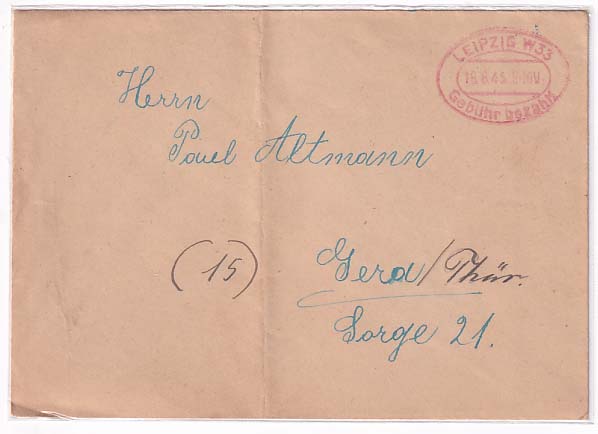 LEIPZIG W33
Gebühr bezahlt
Herrn
Paul Altmann
(15) Gera/Thür.
Sorge 21.